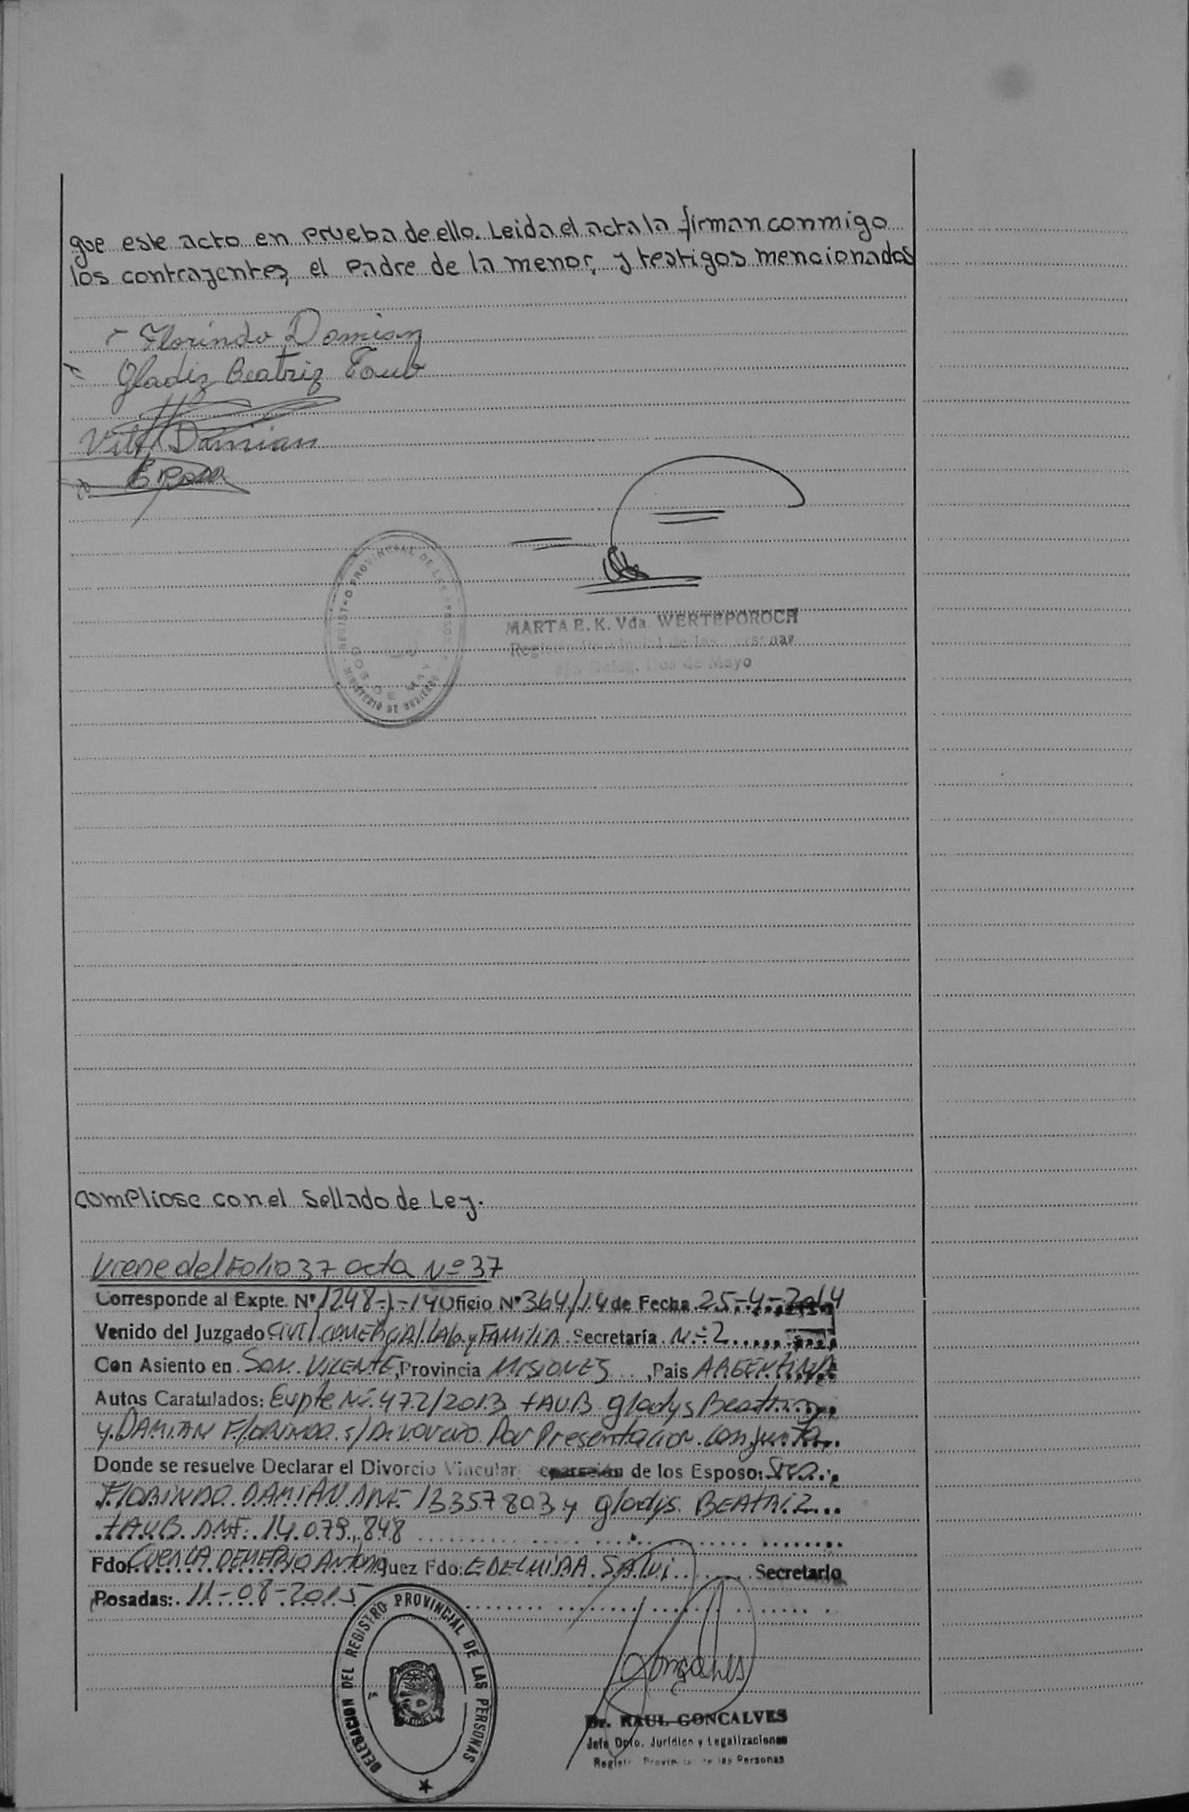 que este acto en prueba de ello. Leida el acta la firman conmigo
los contrayentes, el Padre de la menor, y testigos mencionados
Florindo Damian
Gladiz Beatriz Taub
Damian
REGISTRO PROVINCIAL DE LAS PERSONAS
DOS DE MAYO
MINISTERIO DE GOBIERNO
MARTA E. K. Vda. WERTEPOROCH
Registro Provincial de las Personas
Deleg. Dos de Mayo
compliose con el Sellado de Ley.
Viene del Folio 37 acta Nº 37
Corresponde al Expte. Nº 1248-J-14 Oficio Nº 364/14 de Fecha 25-4-2014
Venido del Juzgado CIVIL, COMERCIAL, LAB. y FAMILIA Secretaría N- 2
Con Asiento en SAN. VICENTE, Provincia MISIONES, País ARGENTINA
Autos Caratulados: Expte Nº 472/2013 TAUB gladys Beatriz
y DAMIAN FLORINDO s/ Divorcio Por Presentacion Conjunta
Donde se resuelve Declarar el Divorcio Vincular de los Esposo: Sres.
FLORINDO DAMIAN DNI- 13357803 y gladys BEATRIZ
TAUB DNI: 14.079.848
Fdo: CUENCA DEMETRIO Antonio Juez Fdo: EDELMIRA SALVI Secretario
Posadas: 11-08-2015
DELEGACION DEL REGISTRO PROVINCIAL DE LAS PERSONAS
Gonçalves
Dr. RAUL GONCALVES
Jefe Dpto. Jurídico y Legalizaciones
Registro Provincial de las Personas